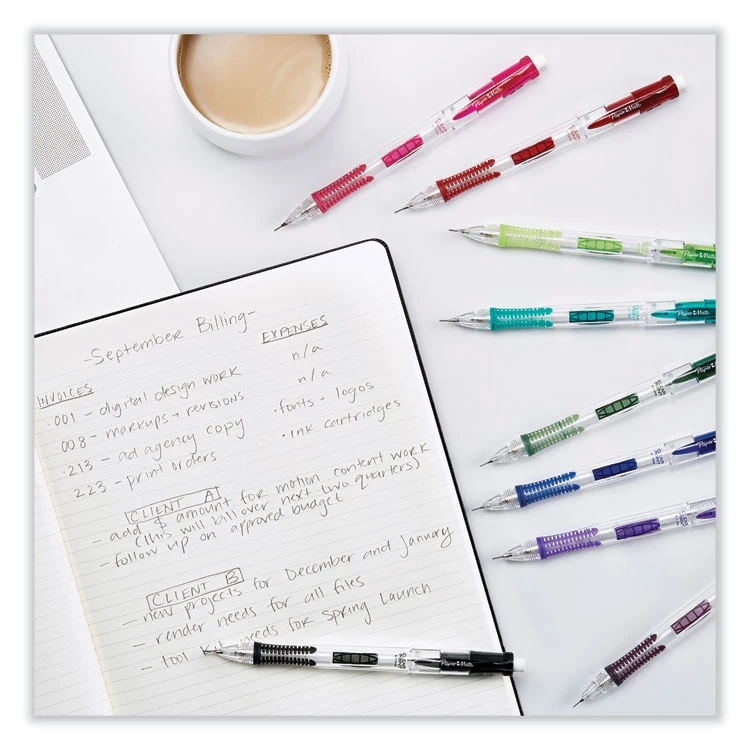 -September Billing-
INVOICES
·001 - digital design work
·008 - markups + revisions
·213 - ad agency copy
·223 - print orders
EXPENSES
n/a
n/a
·fonts + logos
·ink cartridges
CLIENT A
- add $ amount for motion content work
(this will bill over next two quarters)
- follow up on approved budget
CLIENT B
- new projects for December and January
- render needs for all files
- tool kit needs for Spring Launch
Paper Mate
Paper Mate
Paper Mate
Paper Mate
Paper Mate
Paper Mate